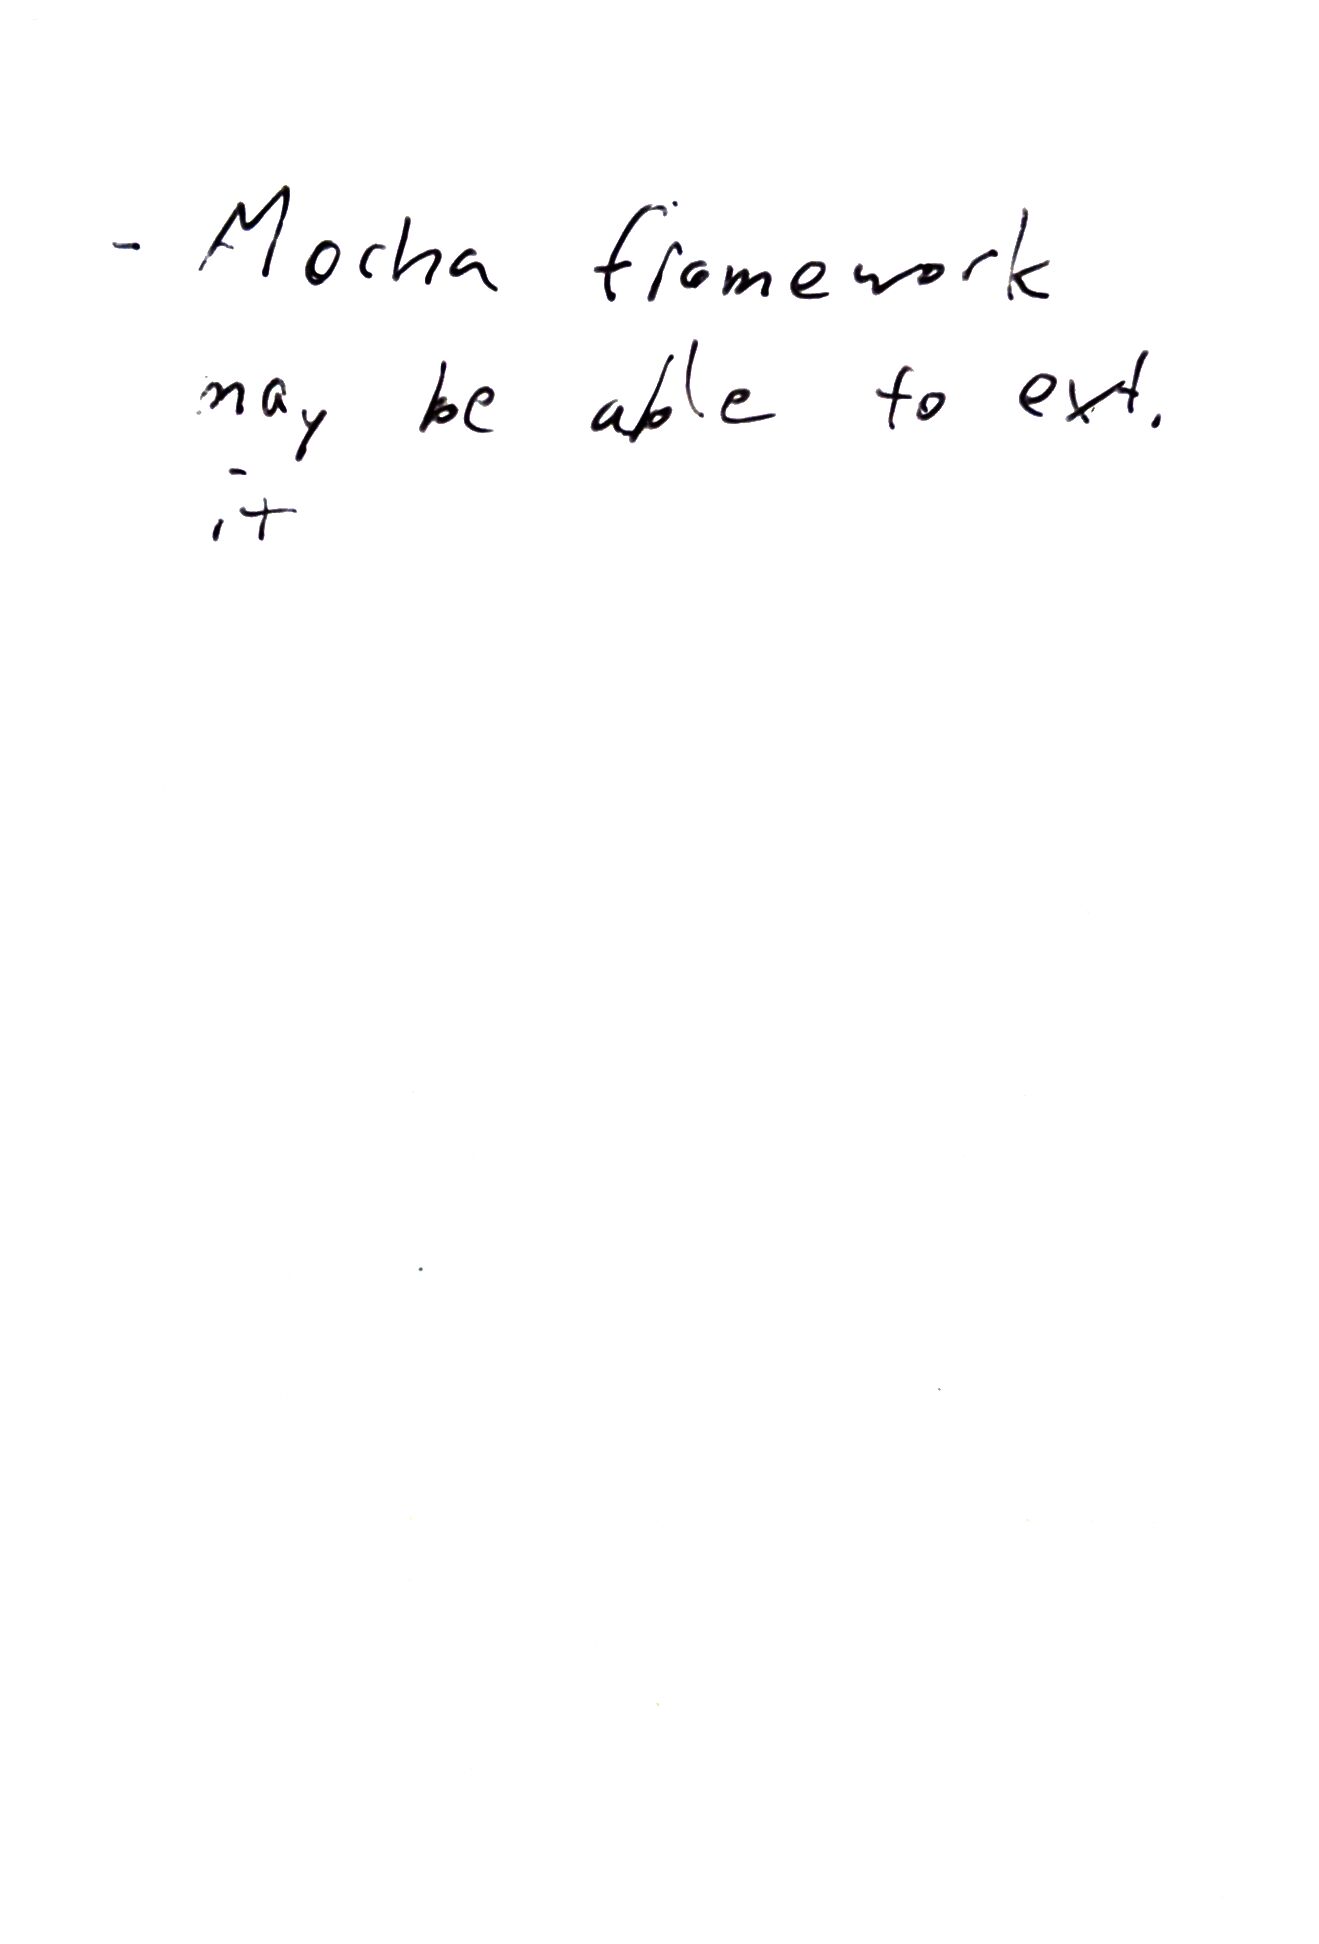 - Mocha framework
may be able to ext.
it